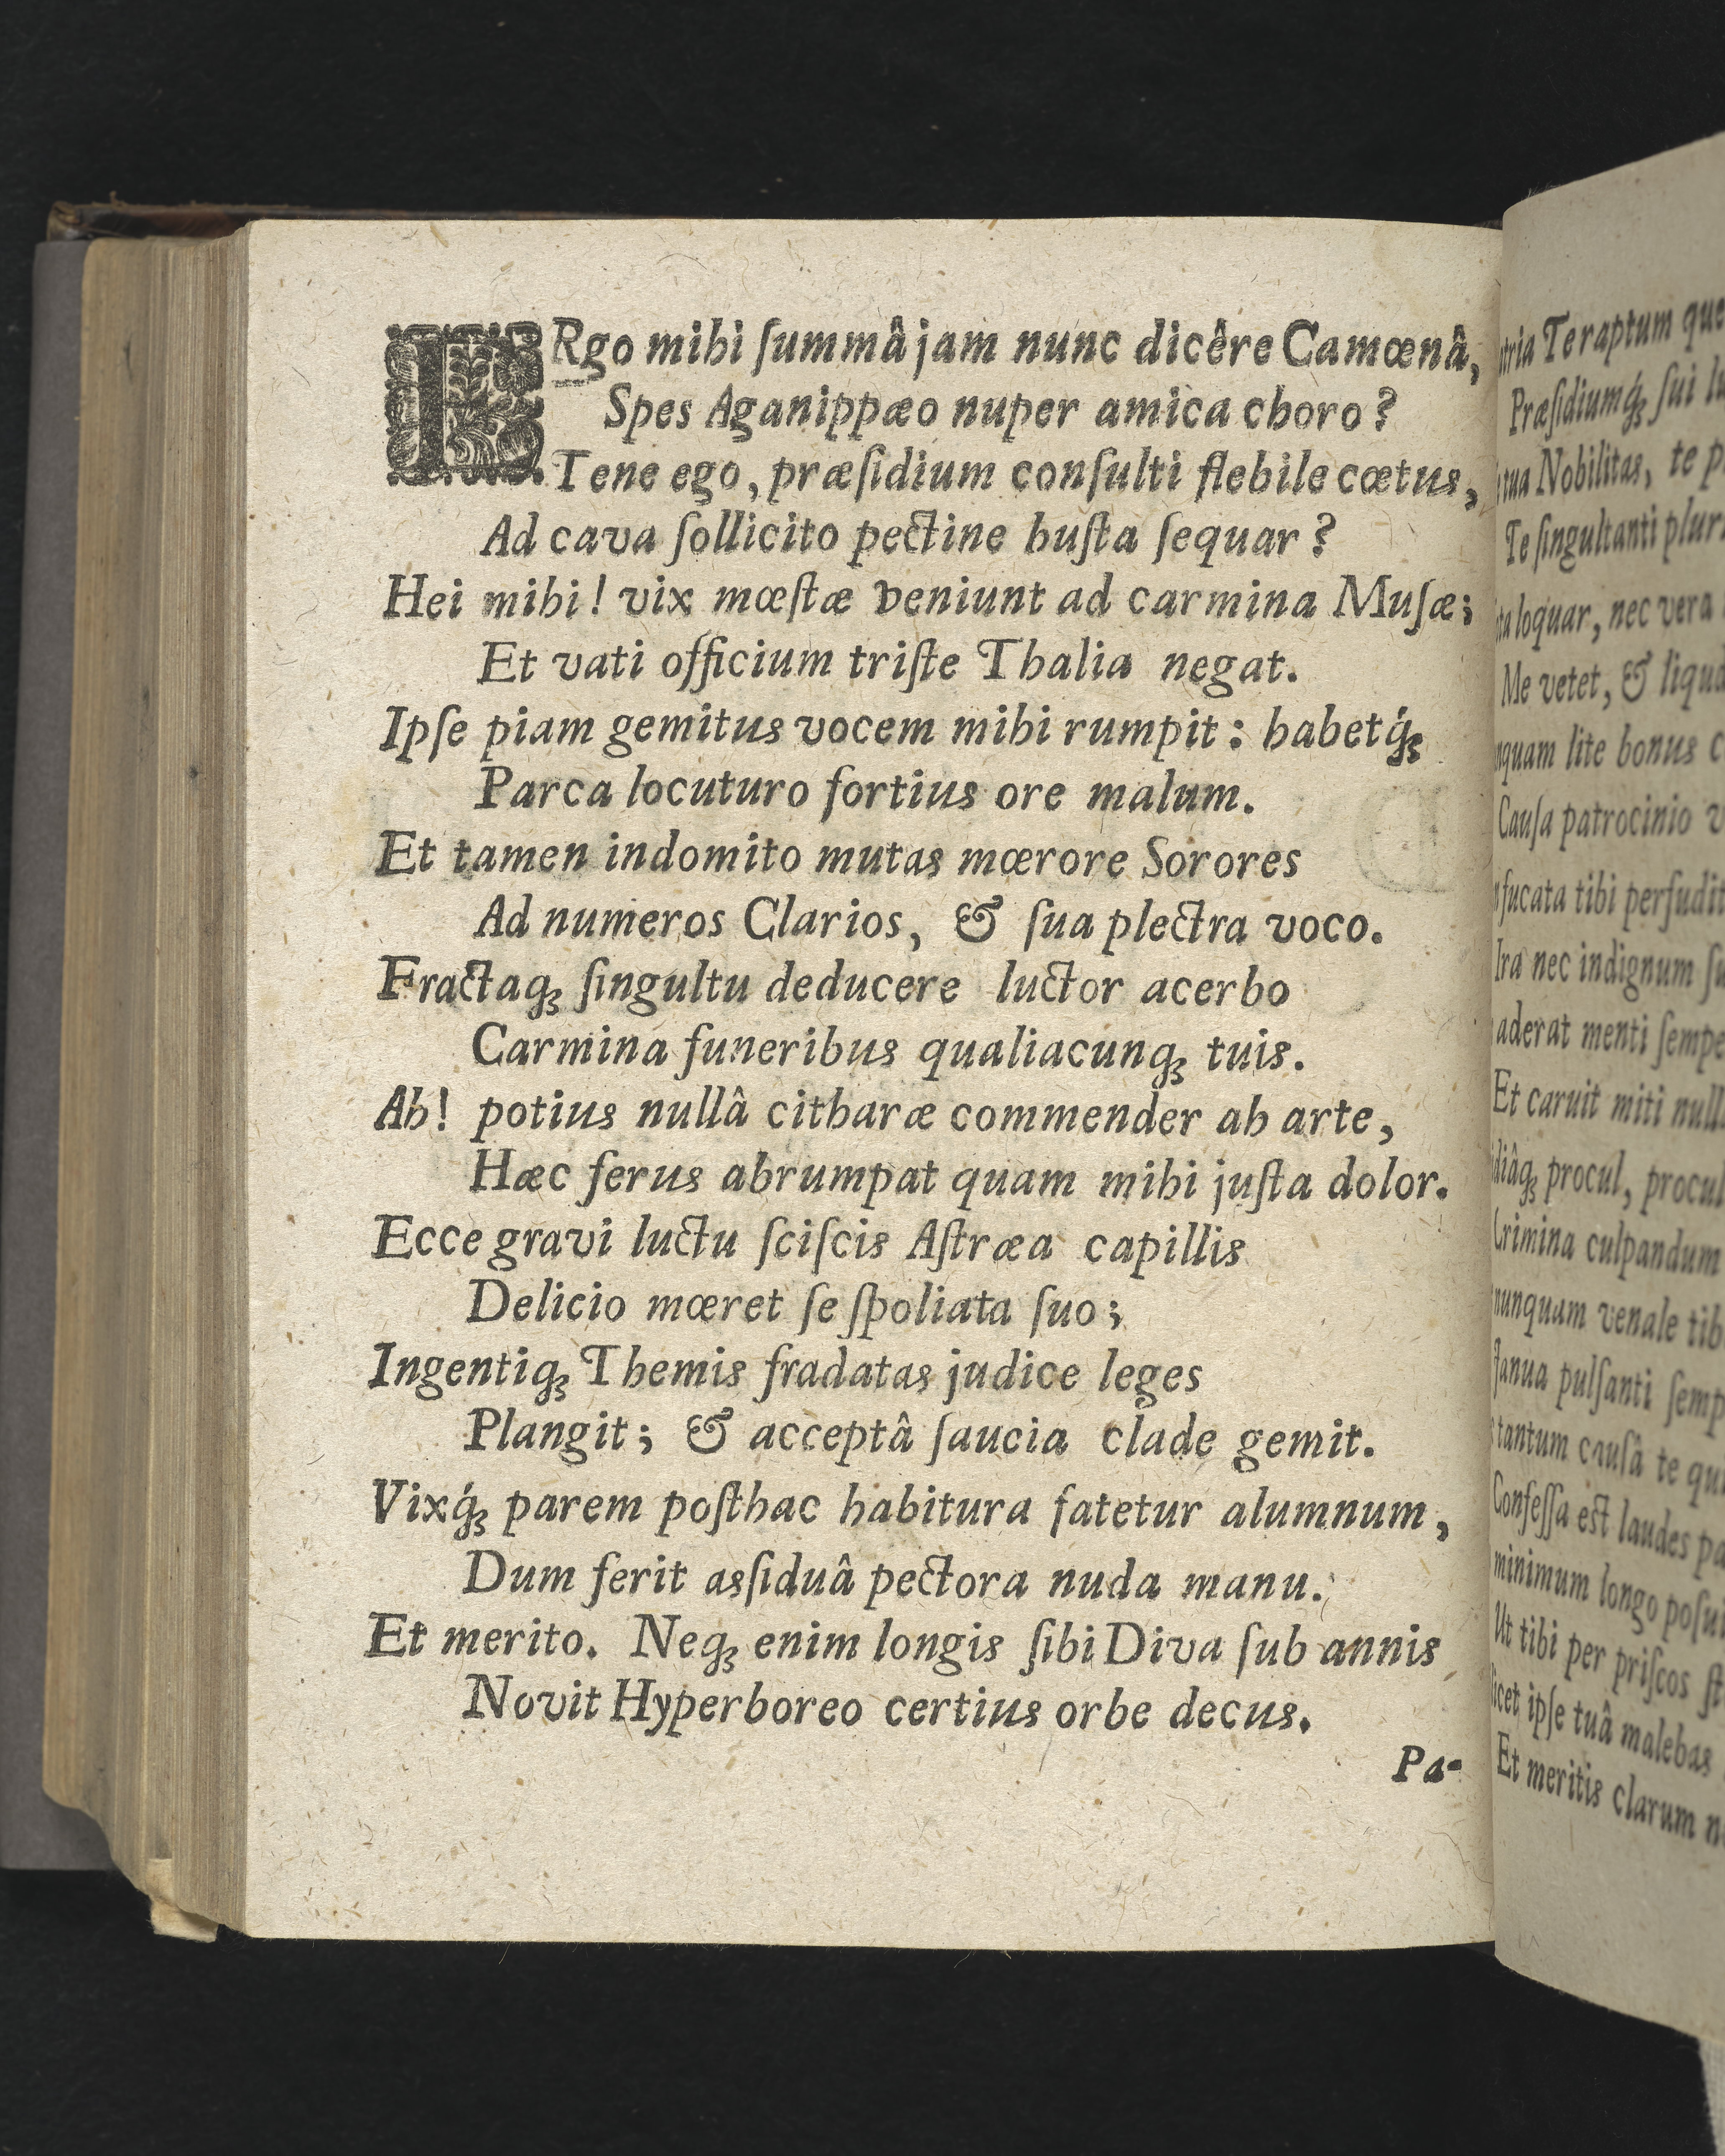 ERgo mihi ſummâ jam nunc dicêre Camœnâ,
Spes Aganippæo nuper amica choro?
Tene ego, præſidium conſulti flebile cœtus,
Ad cava ſollicito pectine buſta ſequar?
Hei mihi! vix mœſtæ veniunt ad carmina Muſæ;
Et vati officium triſte Thalia negat.
Ipſe piam gemitus vocem mihi rumpit: habetq́ꝫ
Parca locuturo fortius ore malum.
Et tamen indomito mutas mœrore Sorores
Ad numeros Clarios, & ſua plectra voco.
Fractaqꝫ ſingultu deducere luctor acerbo
Carmina funeribus qualiacunqꝫ tuis.
Ah! potius nullâ citharæ commender ab arte,
Hæc ferus abrumpat quam mihi juſta dolor.
Ecce gravi luctu ſciſcis Aſtræa capillis
Delicio mœret ſe ſpoliata ſuo;
Ingentiqꝫ Themis fradatas judice leges
Plangit; & acceptâ ſaucia clade gemit.
Vixq́ꝫ parem poſthac habitura fatetur alumnum,
Dum ferit asſiduâ pectora nuda manu.
Et merito. Neqꝫ enim longis ſibi Diva ſub annis
Novit Hyperboreo certius orbe decus.
Pa-
Teraptum
Præſidiumq́ꝫ ſui
Nobilitas, te
Te ſingultanti
loquar, nec vera
Me vetet, &
lite bonus
Cauſa patrocinio
tibi
Ira nec indignum
aderat menti
Et caruit miti
procul,
Crimina culpandum
nunquam venale
Janua pulſanti
tantum cauſâ te
Confeſſa eſt laudes
minimum longo
Ut tibi per priſcos
ipſe tuâ malebas
Et meritis clarum